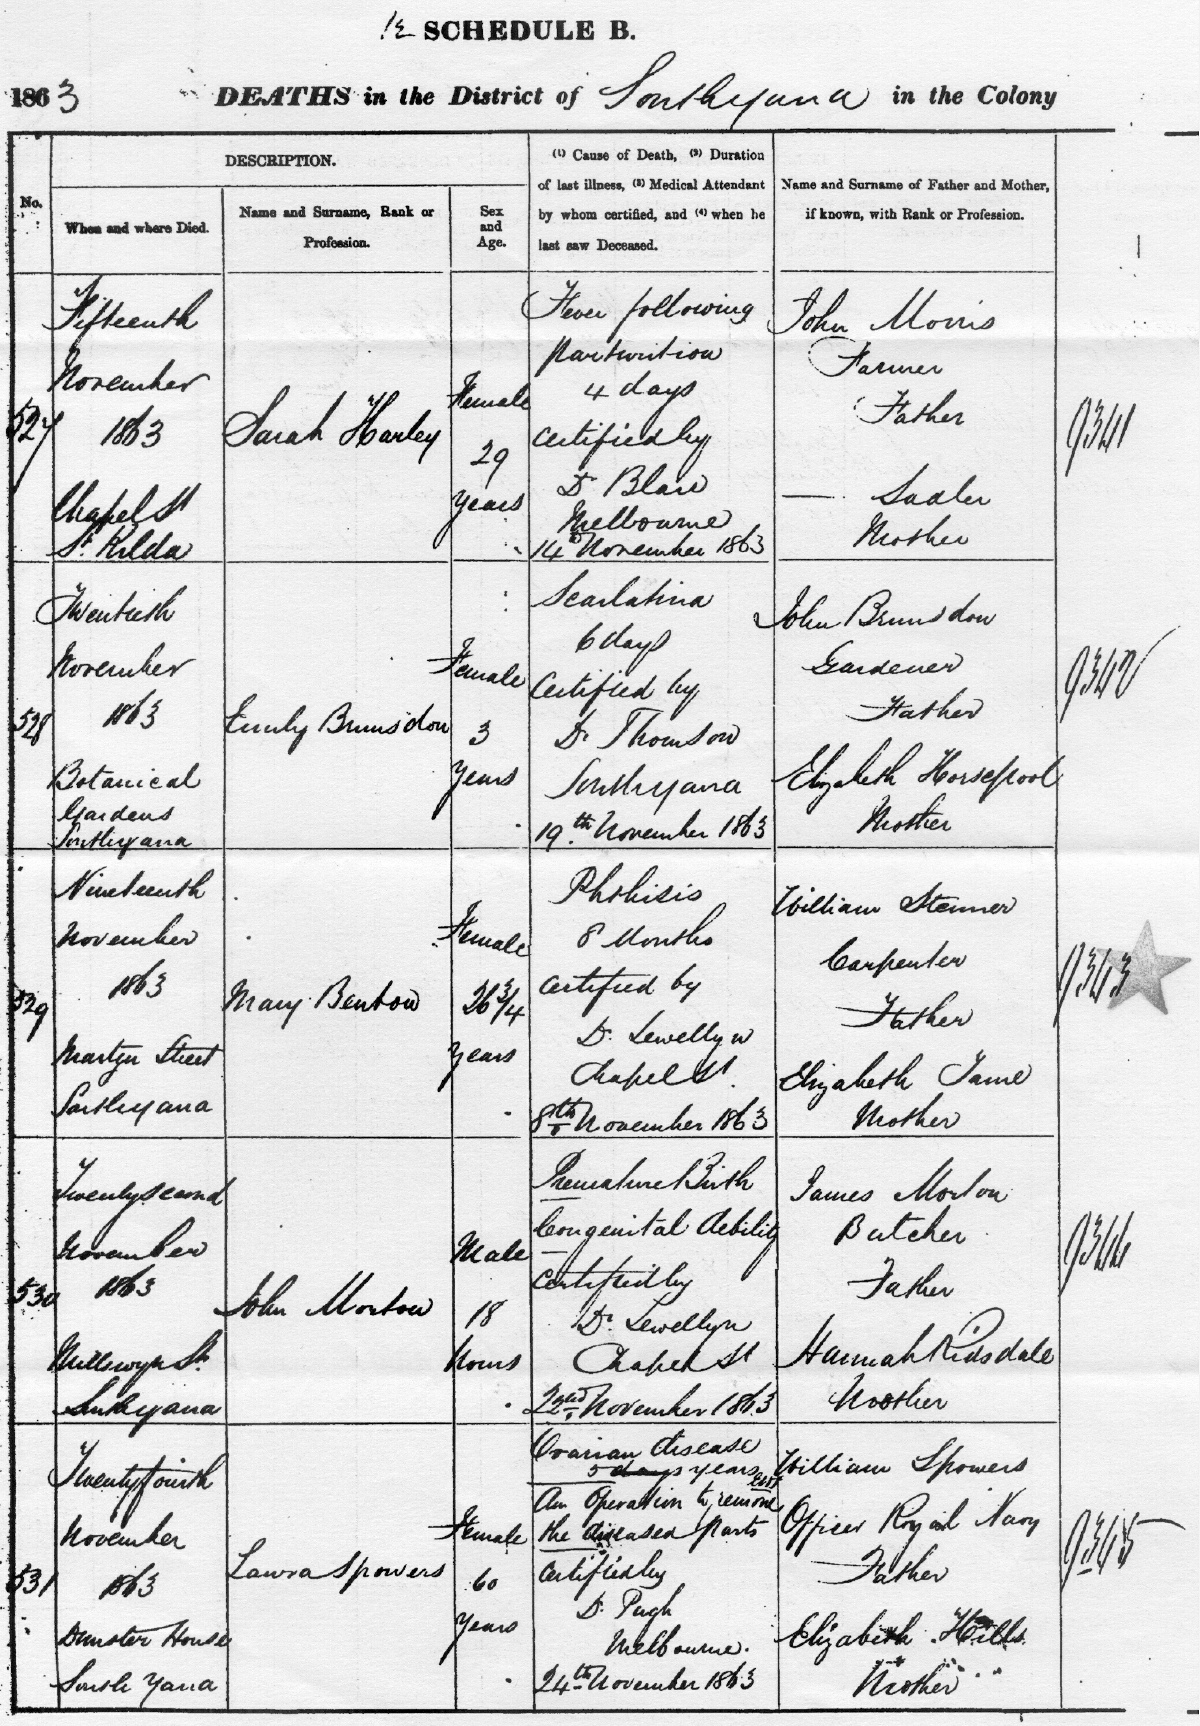 SCHEDULE B.
1863 DEATHS in the District of South Yarra in the Colony
No.
DESCRIPTION.
When and where Died.
Name and Surname, Rank or
Profession.
Sex
and
Age.
(1) Cause of Death, (2) Duration
of last illness, (3) Medical Attendant
by whom certified, and (4) when he
last saw Deceased.
Name and Surname of Father and Mother,
if known, with Rank or Profession.
527
Fifteenth
November
1863
Chapel St
St Kilda
Sarah Harley
Female
29
Years
Fever following
parturition
4 days
Certified by
Dr Blair
Melbourne
14th November 1863
John Morris
Farmer
Father
— Sadler
Mother
9341
528
Twentieth
November
1863
Botanical
Gardens
South Yarra
Emily Brunsdon
Female
3
Years
Scarlatina
6 days
Certified by
Dr Thomson
South Yarra
19th November 1863
John Brunsdon
Gardener
Father
Elizabeth Horsepool
Mother
9342
529
Nineteenth
November
1863
Martyn Street
South Yarra
Mary Benbow
Female
26 3/4
Years
Phthisis
8 Months
Certified by
Dr Lewellyn
Chapel St.
8th November 1863
William Stenner
Carpenter
Father
Elizabeth Tame
Mother
9343
530
Twenty second
November
1863
Millswyn St
South Yarra
John Morton
Male
18
hours
Premature Birth
Congenital debility
Certified by
Dr Lewellyn
Chapel St
22nd November 1863
James Morton
Butcher
Father
Hannah Ridsdale
Mother
9344
531
Twenty fourth
November
1863
Dunster House
South Yarra
Laura Spowers
Female
60
Years
Ovarian disease
5 days years
An Operation to remove
the diseased parts
Certified by
Dr Pugh
Melbourne.
24th November 1863
William Spowers
Officer Royal Navy
Father
Elizabeth Hills
Mother
9345